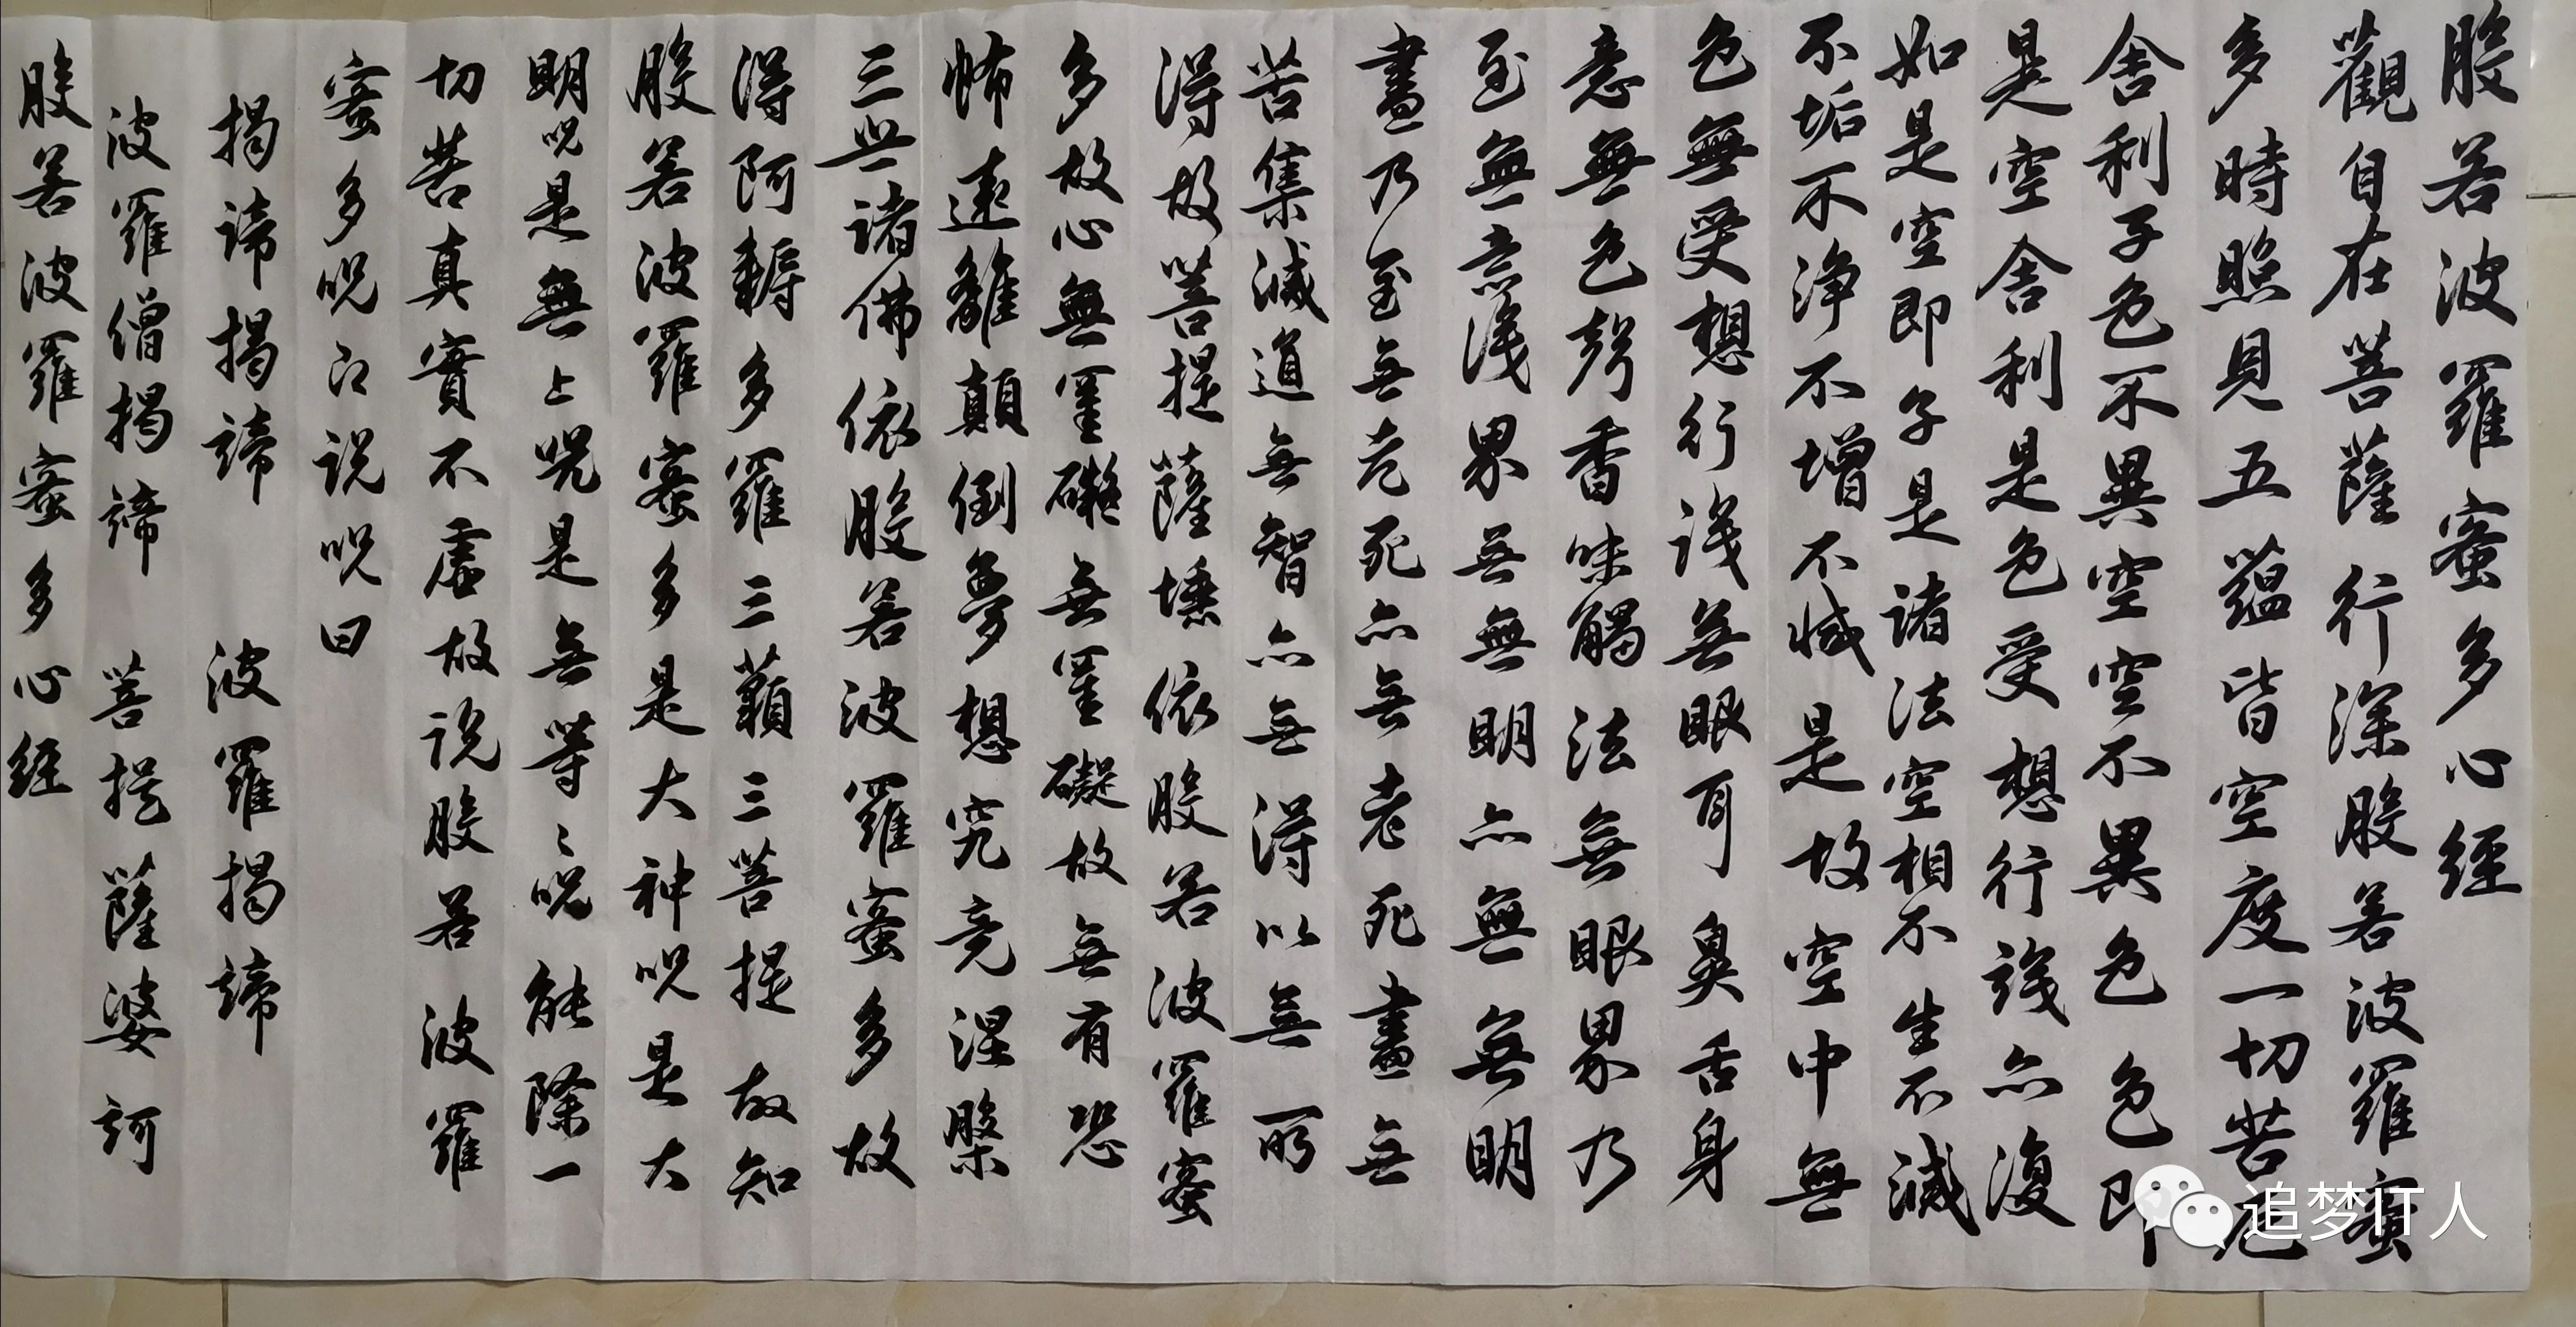 般若波羅蜜多心經
觀自在菩薩行深般若波羅蜜
多時照見五蘊皆空度一切苦厄
舍利子色不異空空不異色色即
是空舍利是色受想行識亦復
如是空即子是諸法空相不生不滅
不垢不淨不增不減是故空中無
色無受想行識無眼耳鼻舌身
意無色聲香味觸法無眼界乃
至無意識界無無明亦無無明
盡乃至無老死亦無老死盡無
苦集滅道無智亦無得以無所
得故菩提薩埵依般若波羅蜜
多故心無罣礙無罣礙故無有恐
怖遠離顛倒夢想究竟涅槃
三世諸佛依般若波羅蜜多故
得阿耨多羅三藐三菩提故知
般若波羅蜜多是大神呪是大
明呪是無上呪是無等〻呪能除一
切苦真實不虛故說般若波羅
蜜多呪即說呪曰
揭諦揭諦 波羅揭諦
波羅僧揭諦 菩提薩婆訶
般若波羅蜜多心經
追梦IT人